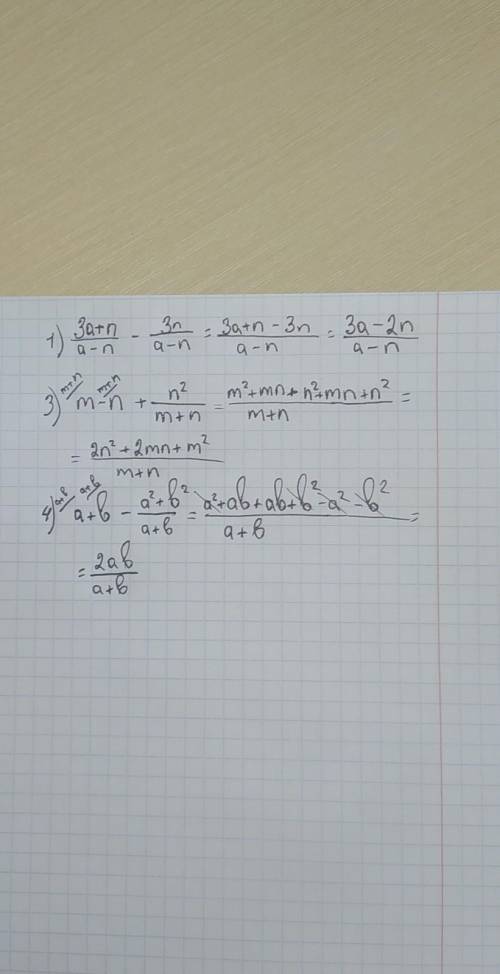 1) (3a+n)/(a-n) - 3n/(a-n) = (3a+n-3n)/(a-n) = (3a-2n)/(a-n)
m+n m+n
3) m-n + n²/(m+n) = (m²+mn+n²+mn+n²)/(m+n) =
= (2n²+2mn+m²)/(m+n)
a+b a+b
4) a+b - (a²+b²)/(a+b) = (a²+ab+ab+b²-a²-b²)/(a+b) =
= 2ab/(a+b)